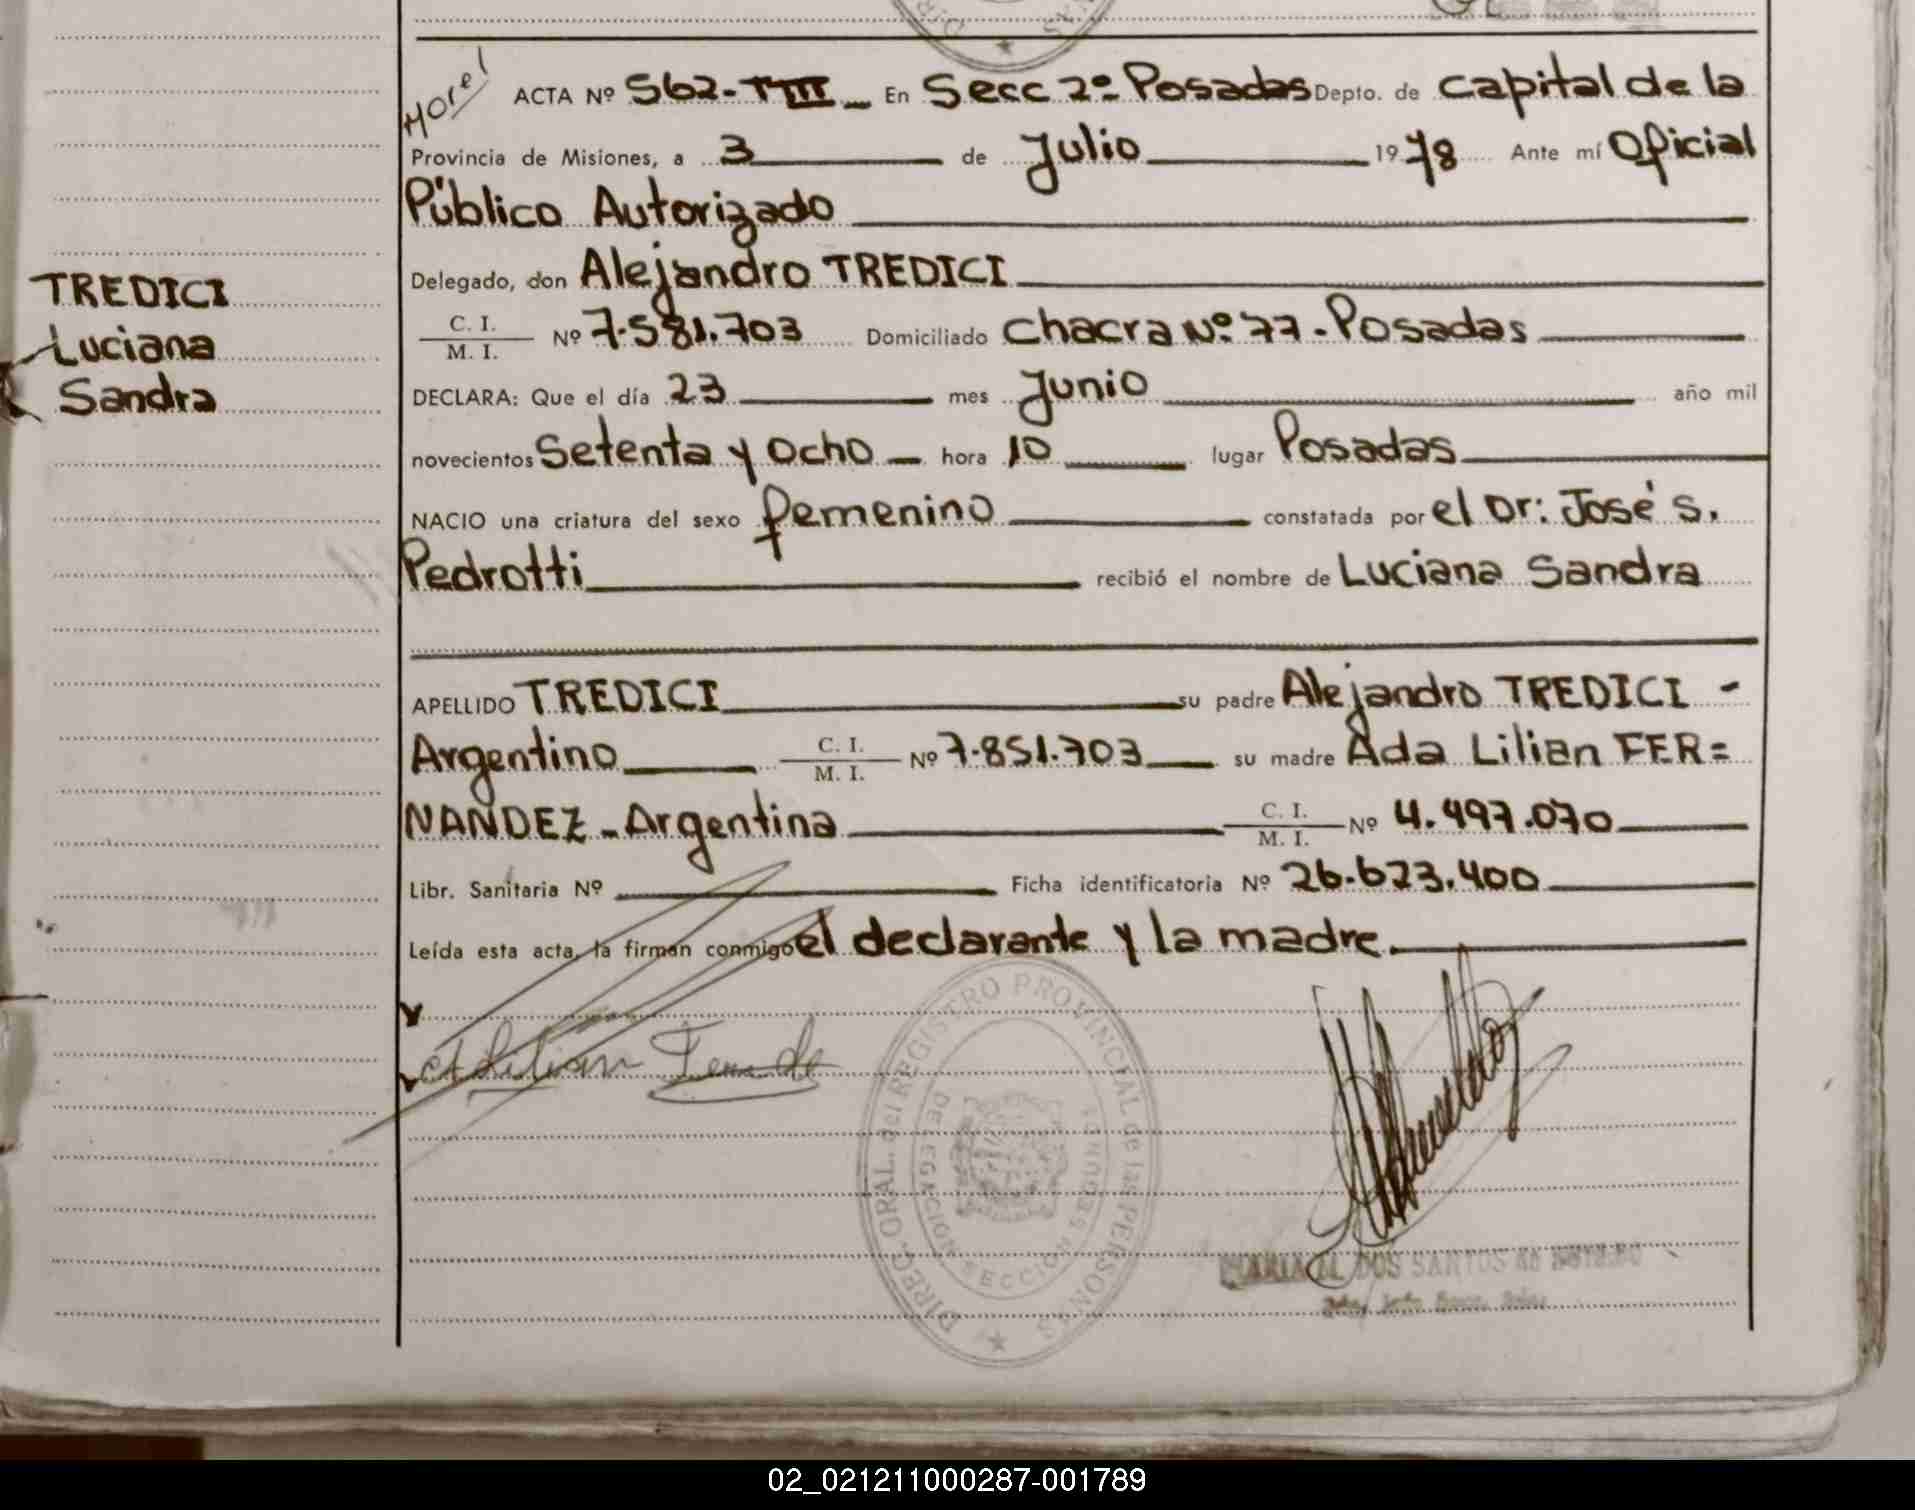 Morel
ACTA Nº 562-TIII_ En Secc 2º Posadas Depto. de Capital de la
Provincia de Misiones, a 3 de Julio 1978 Ante mí Oficial
Público Autorizado
Delegado, don Alejandro TREDICI
C. I.
M. I. Nº 7.581.703 Domiciliado Chacra Nº 77 - Posadas
DECLARA: Que el día 23 mes Junio año mil
novecientos Setenta y Ocho hora 10 lugar Posadas
NACIO una criatura del sexo femenino constatada por el Dr: José S.
Pedrotti recibió el nombre de Luciana Sandra
APELLIDO TREDICI su padre Alejandro TREDICI -
Argentino C. I. M. I. Nº 7.851.703 su madre Ada Lilian FER=
NANDEZ - Argentina C. I. M. I. Nº 4.497.070
Libr. Sanitaria Nº Ficha identificatoria Nº 26.623.400
Leída esta acta, la firman conmigo el declarante y la madre
TREDICI
Luciana
Sandra
A Lilian
DIREC. GRAL. del REGISTRO PROVINCIAL de las PERSONAS
DELEGACION SECCION SEGUNDA
MARIA DOS SANTOS
02_021211000287-001789